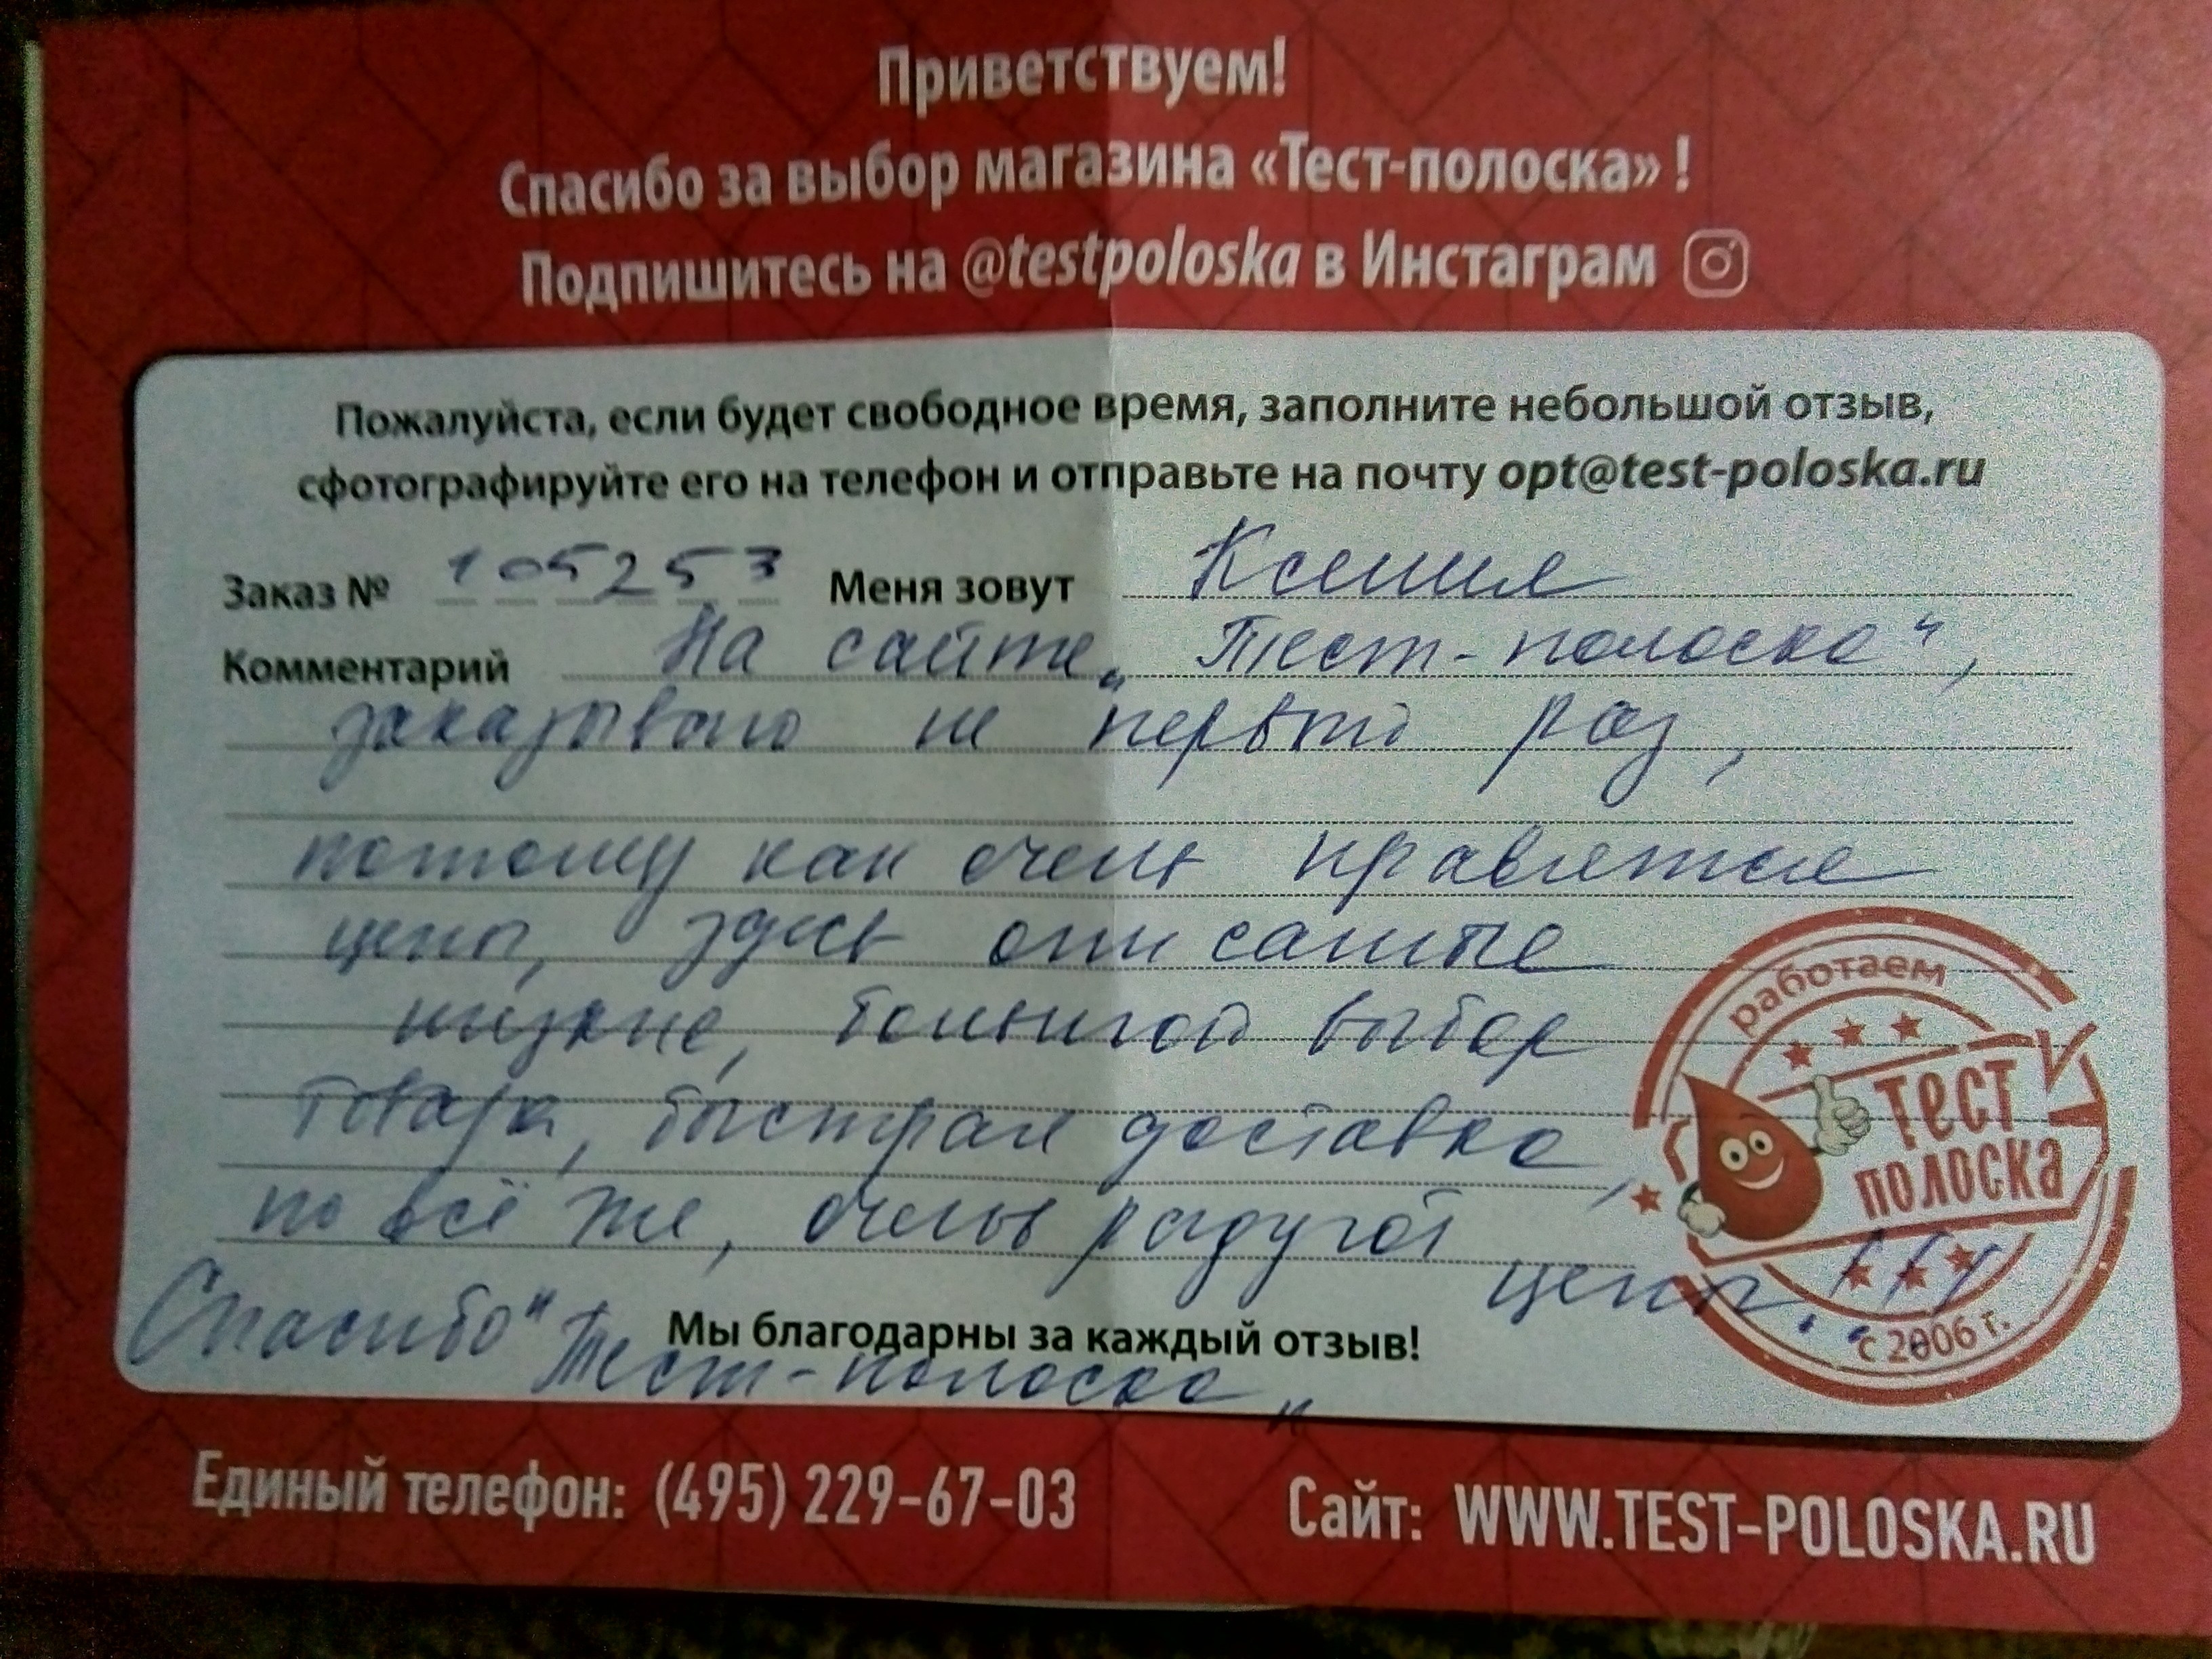 Приветствуем!
Спасибо за выбор магазина «Тест-полоска» !
Подпишитесь на @testpoloska в Инстаграм
Пожалуйста, если будет свободное время, заполните небольшой отзыв,
сфотографируйте его на телефон и отправьте на почту opt@test-poloska.ru
Заказ № 105253 Меня зовут Ксения
Комментарий На сайте „Тест-полоска“,
заказываю не первый раз,
потому как очень нравятся
цены, здесь они самые
низкие, большой выбор
товара, быстрая доставка,
но всё же, очень радуют цены!!!
Спасибо "Тест-полоска„
Мы благодарны за каждый отзыв!
работаем
ТЕСТ
ПОЛОСКА
с 2006 г.
Единый телефон: (495) 229-67-03
Сайт: WWW.TEST-POLOSKA.RU